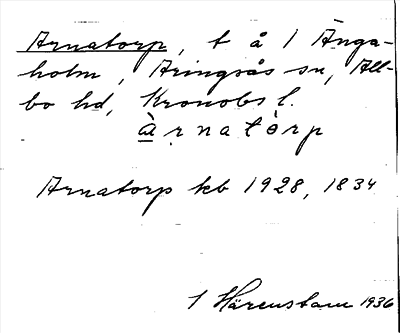 Arnatorp, t å 1 Änga-
holm, Aringsås sn, All-
bo hd, Kronobs l.
à̱rnatò̱rp
Arnatorp kb 1928, 1834
1 Härenstam 1936